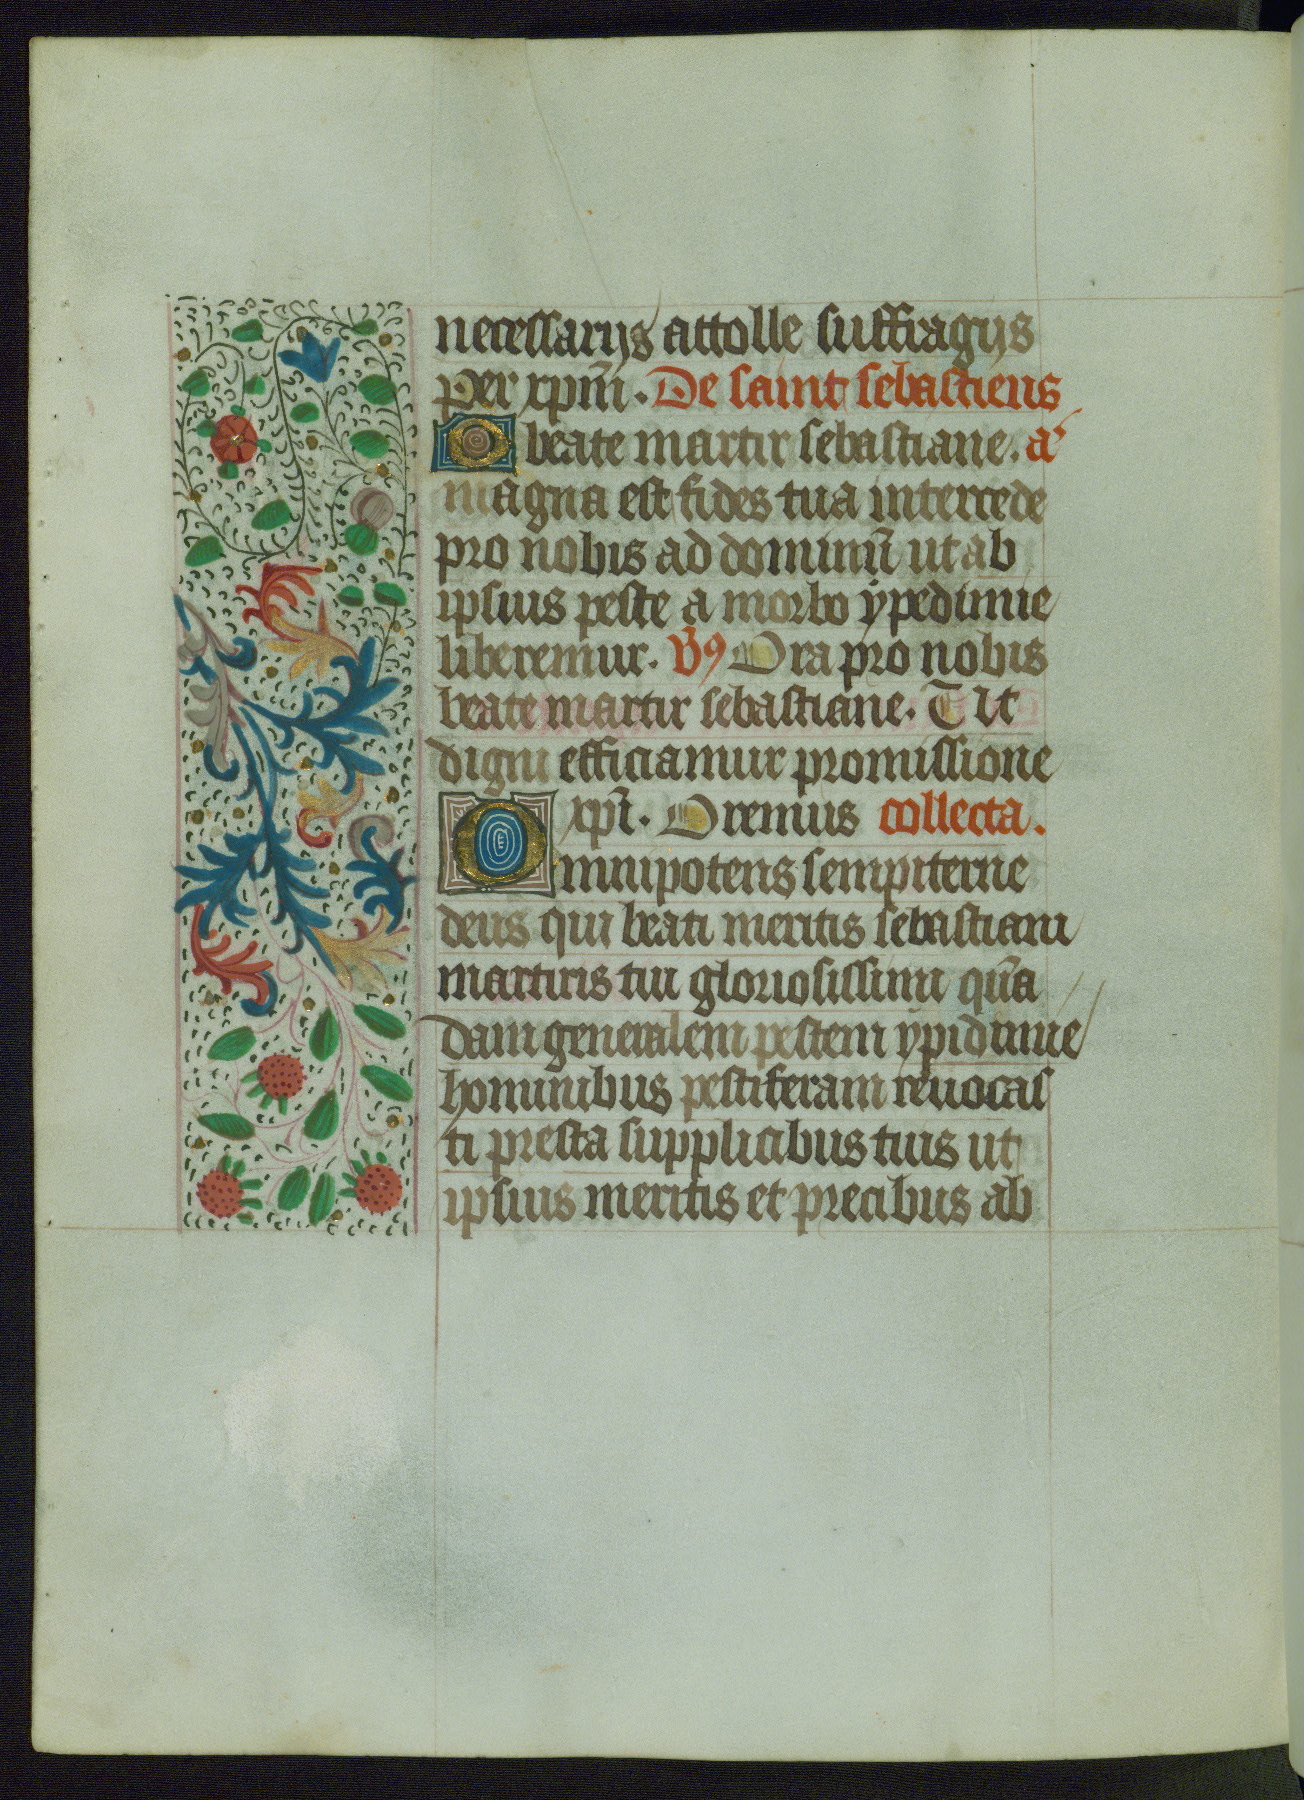 necessarijs attolle suffragijs
per xpm̄. De saint sebastiens
O beate martir sebastiane. a
magna est fides tua intercede
pro nobis ad dominū ut ab
ipsius peste a morbo ypedimie
liberemur. V9 Ora pro nobis
beate martir sebastiane. Ut
digni efficiamur promissione
xpī. Oremus collecta.
Omnipotens sempiterne
deus qui beati meritis sebastiani
martiris tui gloriosissimi qūa
dam generalem pestem ypidimie
hominibus pestiferam reuocas
ti presta supplicibus tuis ut
ipsius meritis et precibus ab